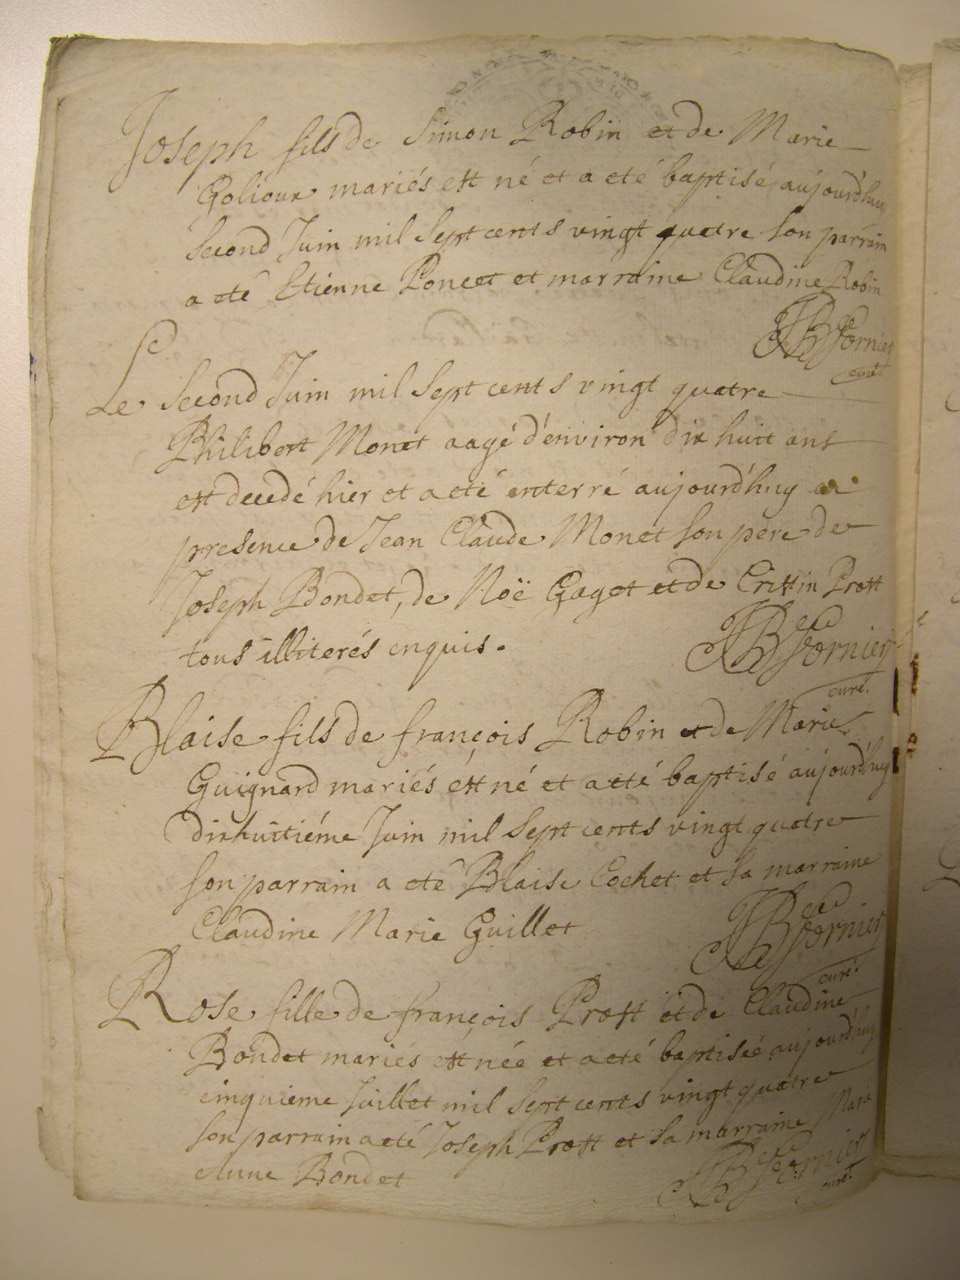 Joseph fils de Simon Robin et de Marie
Goliour mariés est né et a eté baptisé aujourd'huy
second Juin mil sept cents vingt quatre son parrain
a eté Etienne Poncet et marraine Claudine Robin
JB Fornier
curé
Le second Juin mil sept cents vingt quatre
Philibert Monet aagé d'environ dix huit ans
est decedé hier et a eté enterré aujourd'huy en
presence de Jean Claude Monet son pere de
Joseph Bondet, de Noë Gaget et de Cristin Prost
tous illiterés enquis.
JB Fornier
curé.
Blaise fils de françois Robin et de Marie
Guignard mariés ést né et a eté baptisé aujourd'huy
dixhuitiéme Juin mil sept cents vingt quatre
son parrain a eté Blaise Cochet et sa marraine
Claudine Marie Guillet
JB Fornier
curé.
Rose fille de françois Prost et de Claudine
Bondet mariés est née et a eté baptiseé aujourd'huy
cinquieme Juillet mil sept cents vingt quatre
son parrain a eté Joseph Prost et sa marraine Marie
Anne Bondet
JB Fornier
curé.